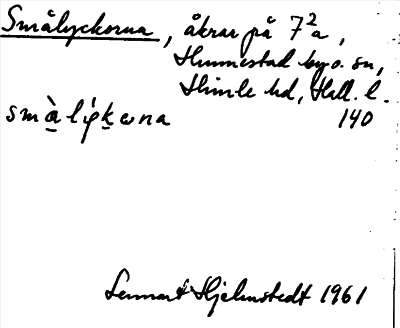 Smålyckorna, åkrar på 7²a,
Hunnestad by o. sn,
Himle hd, Hall. l.
140
Lennart Hjelmstedt 1961